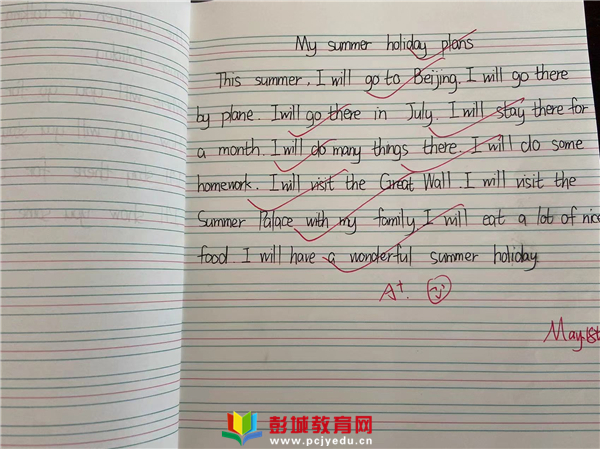 My summer holiday plans
This summer, I will go to Beijing. I will go there
by plane. I will go there in July. I will stay there for
a month. I will do many things there. I will do some
homework. I will visit the Great Wall. I will visit the
Summer Palace with my family. I will eat a lot of nice
food I will have a wonderful summer holiday
A+.
May.18th
彭城教育网
www.pcjyedu.cn